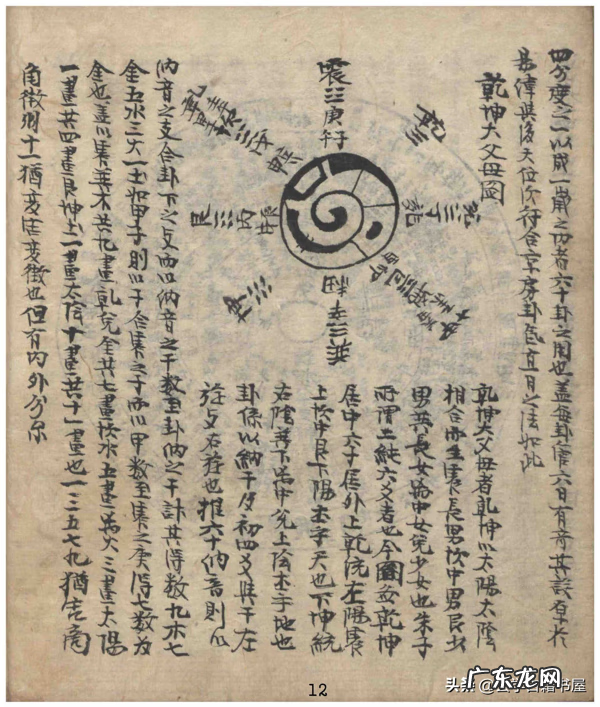 四分度之一以成一歲之功者六十卦之用也蓋每卦管六日有奇其說存於
易緯與後天位次符合京房卦气直日之法如此
乾坤大父母圖
震三庚
乾坤大父母者乾坤以太陽太陰
相合而生震長男坎中男艮少
男巽長女离中女兌少女也朱子
所謂上純六爻者也今圖並乾坤
居中六子居外上乾統左陽震
上坎中艮下陽本乎天也下坤統
右陰巽下离中兌上陰本乎地也
卦係以納干及初四爻與干左
旋爻右旋也推六十納音則以
納音之支合卦下之爻而以納音之干数至卦納之干計其得数九木七
金五水三火一土如甲子則以子合震之子而以甲数至震之庚得七数為
金也盖以震巽木共九畫乾兌金共七畫坎水五畫离火三畫太陽
一畫共四畫艮坤土一畫太陰十畫共十一畫也一三五七九猶宮商
角徵羽十一猶变宮变徵也但有内外分尓
12
头条
广东龙网